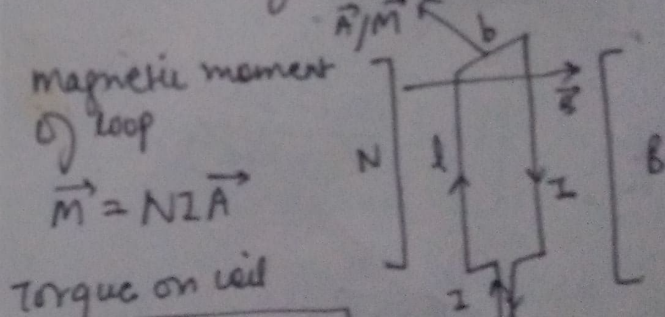 magnetic moment
of loop
M = NIA
Torque on coil
A/M
b
N
l
I
I
B